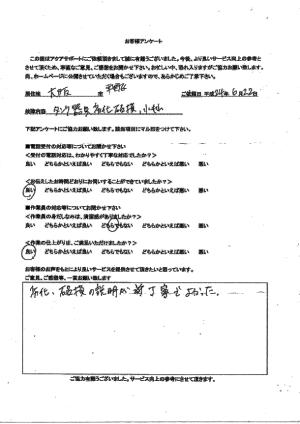 お客様アンケート
この度はアクアサポートにご依頼頂きまして誠に有難うございました。今後、より良いサービス向上の参考と
させて頂くため、率直なご意見、ご感想をお聞かせ下さい。お忙しい中、恐れ入りますがご協力お願い致します。
尚、ホームページに公開させていただく場合もございますので、あらかじめご了承下さい。
居住地 大阪 市 ご依頼日 平成24年6月22日
故障内容 タンク器具劣化破損、
下記アンケートにご協力お願い致します。該当項目にマル印をつけて下さい。
■電話受付の対応等についてお聞かせ下さい
<受付の電話対応は、わかりやすく丁寧な対応でしたか?>
良い どちらかといえば良い どちらでもない どちらかといえば悪い 悪い
<お伝えしたお時間どおりにお伺いすることができていましたか?>
良い どちらかといえば良い どちらでもない どちらかといえば悪い 悪い
■作業員の対応等についてお聞かせ下さい
<作業員の身だしなみは、清潔感がありましたか?>
良い どちらかといえば良い どちらでもない どちらかといえば悪い 悪い
<作業の仕上がりは、ご満足いただけましたか?>
良い どちらかといえば良い どちらでもない どちらかといえば悪い 悪い
お客様のお声をもとにより良いサービスを提供させて頂きたいと思っています。
ご意見、ご感想等、一言お願い致します
劣化、破損の説明が 丁寧でよかった。
ご協力有難うございました。サービス向上の参考にさせて頂きます。